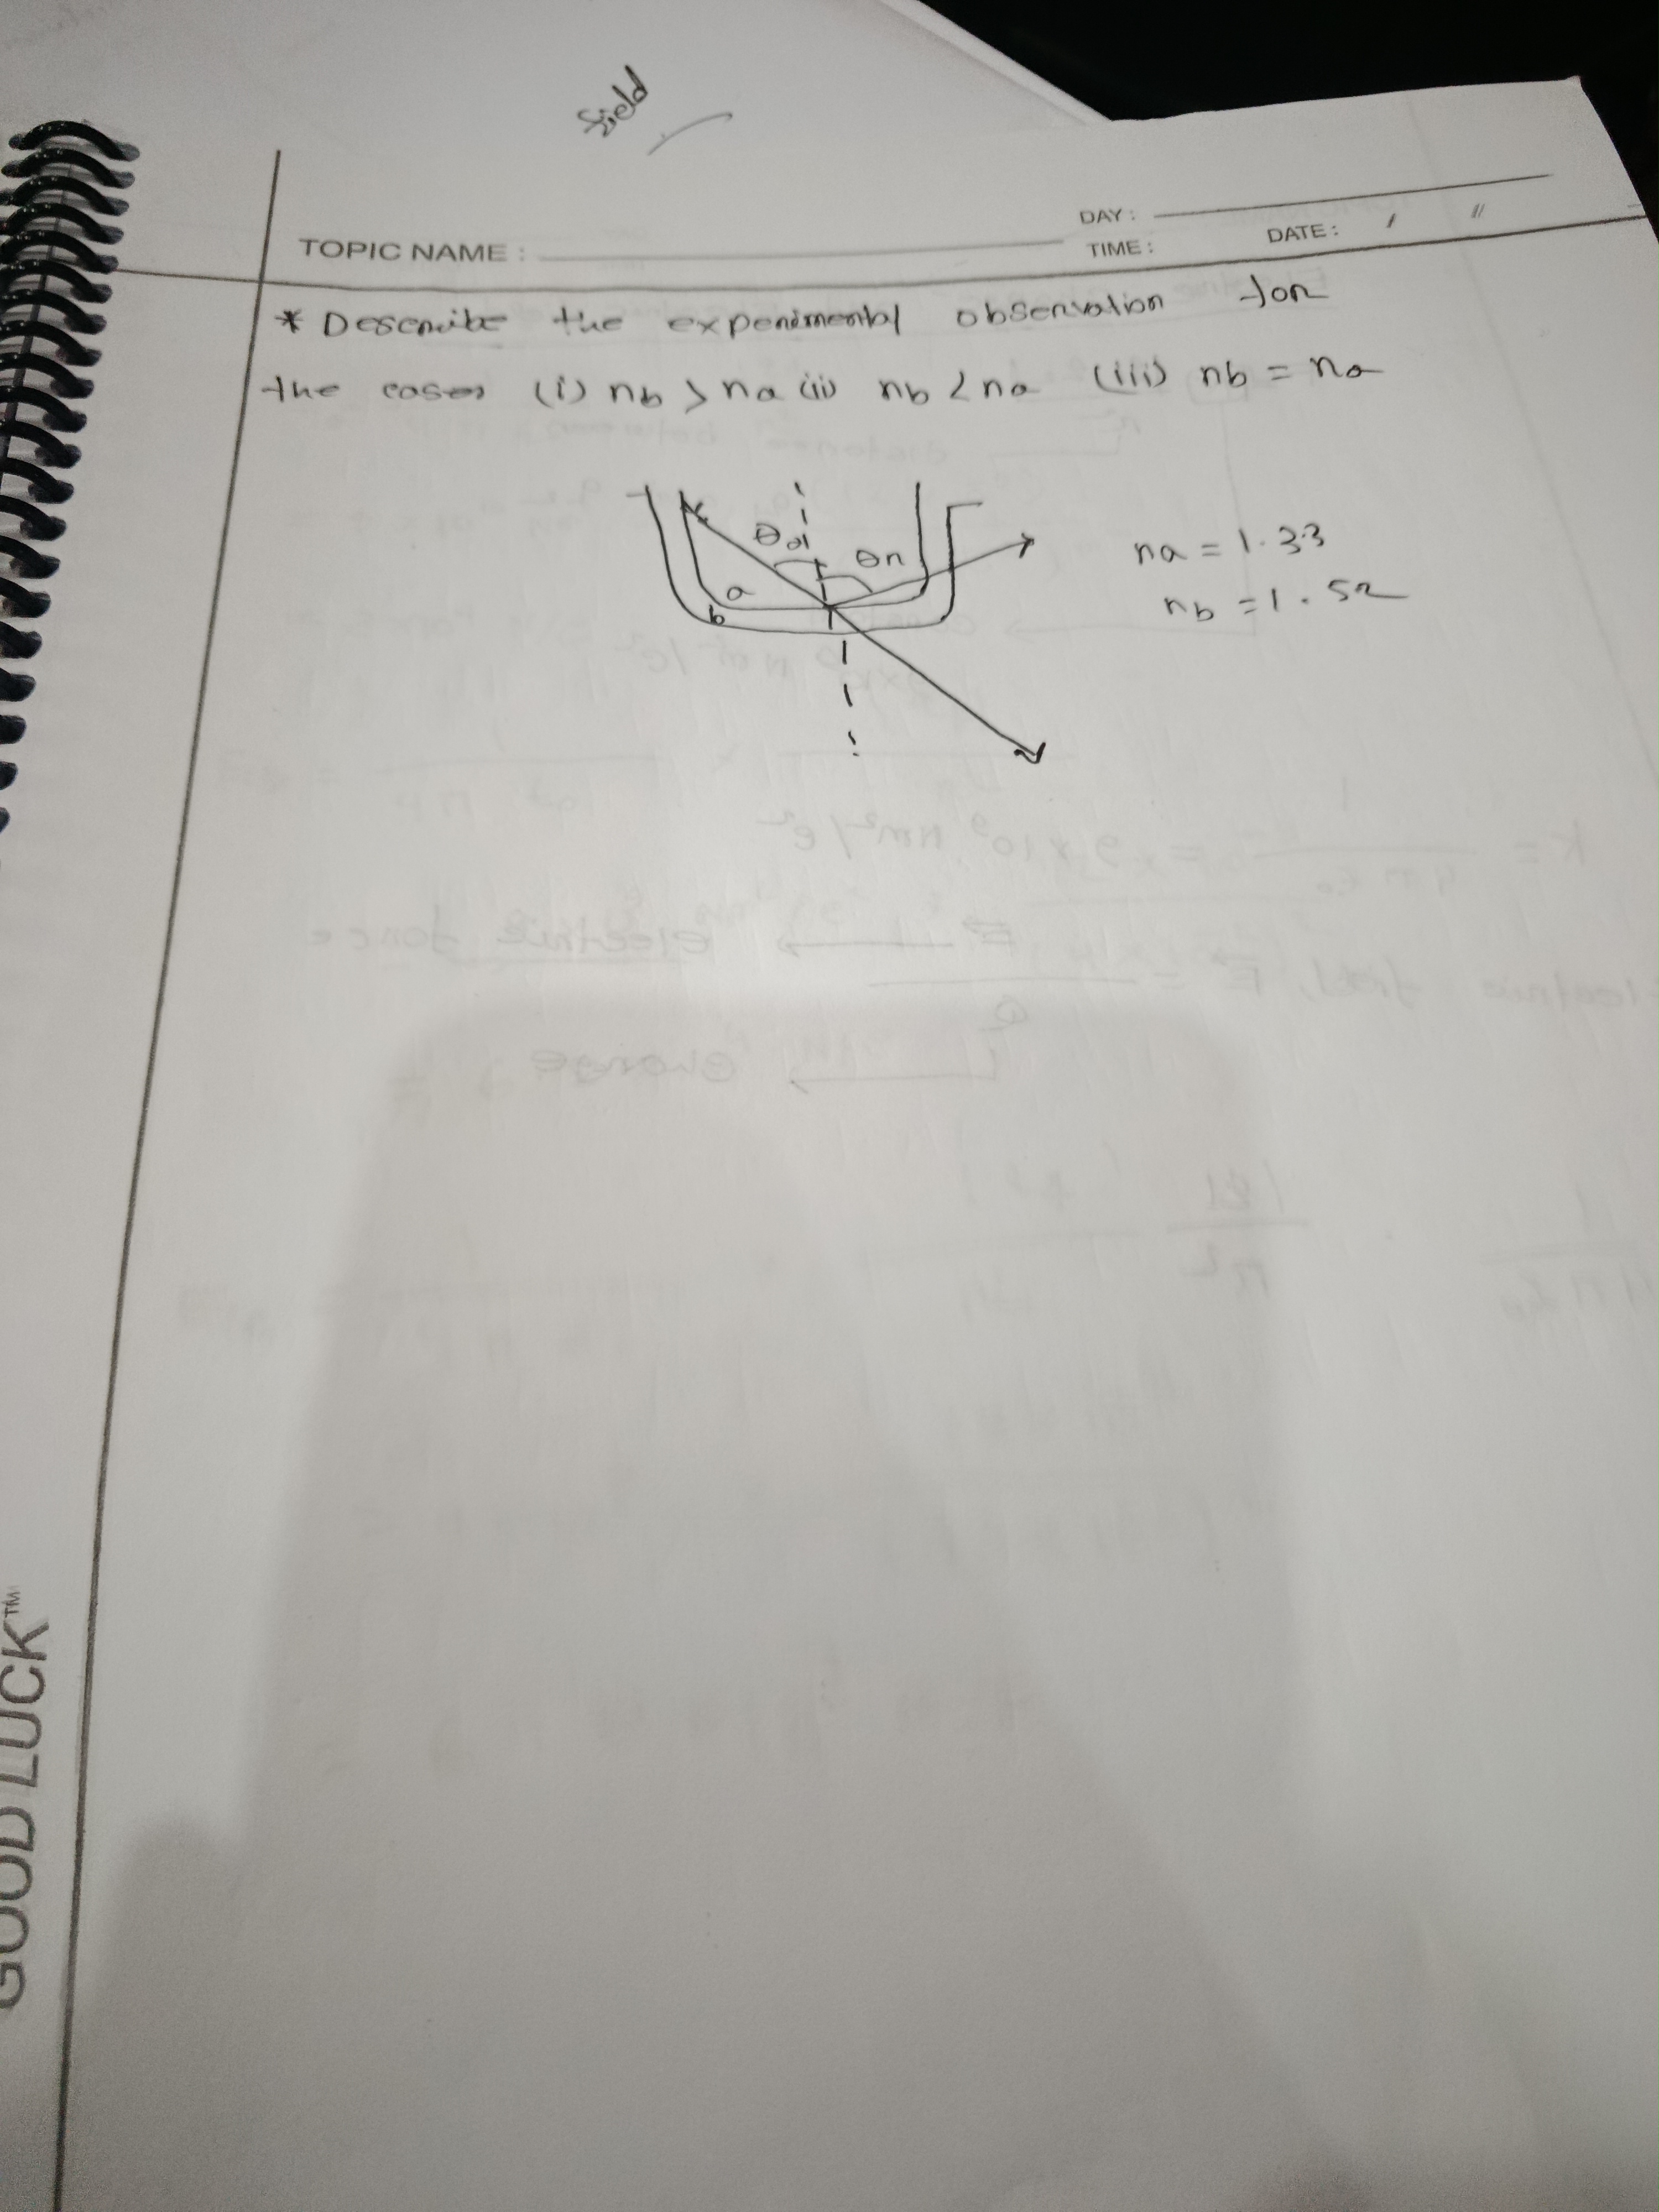 field
DAY:
TOPIC NAME: TIME: DATE: / //
* Describe the experimental observation for
the cases (i) nb > na (ii) nb < na (iii) nb = na
θa θr na = 1.33
a nb = 1.52
b
GOOD LUCK™